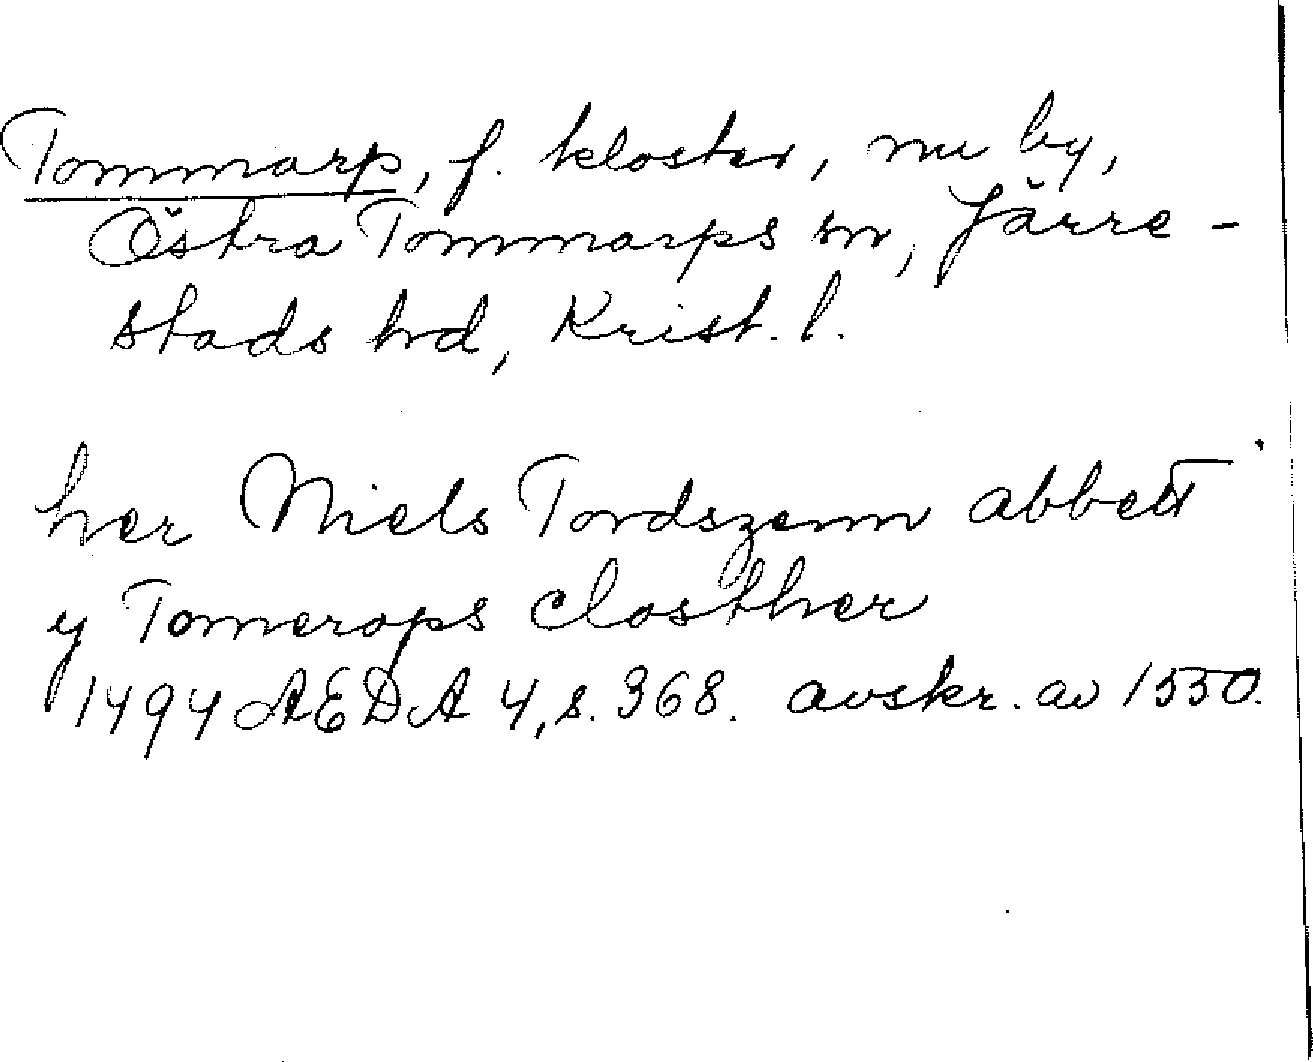 Tommarp, f. kloster, nu by,
Östra Tommarps sn, Järre-
stads hd, Krist. l.
her Niels Tordszenn abbett
y Tomerops closther
1494 AEDA 4, s. 368. avskr. av 1550.